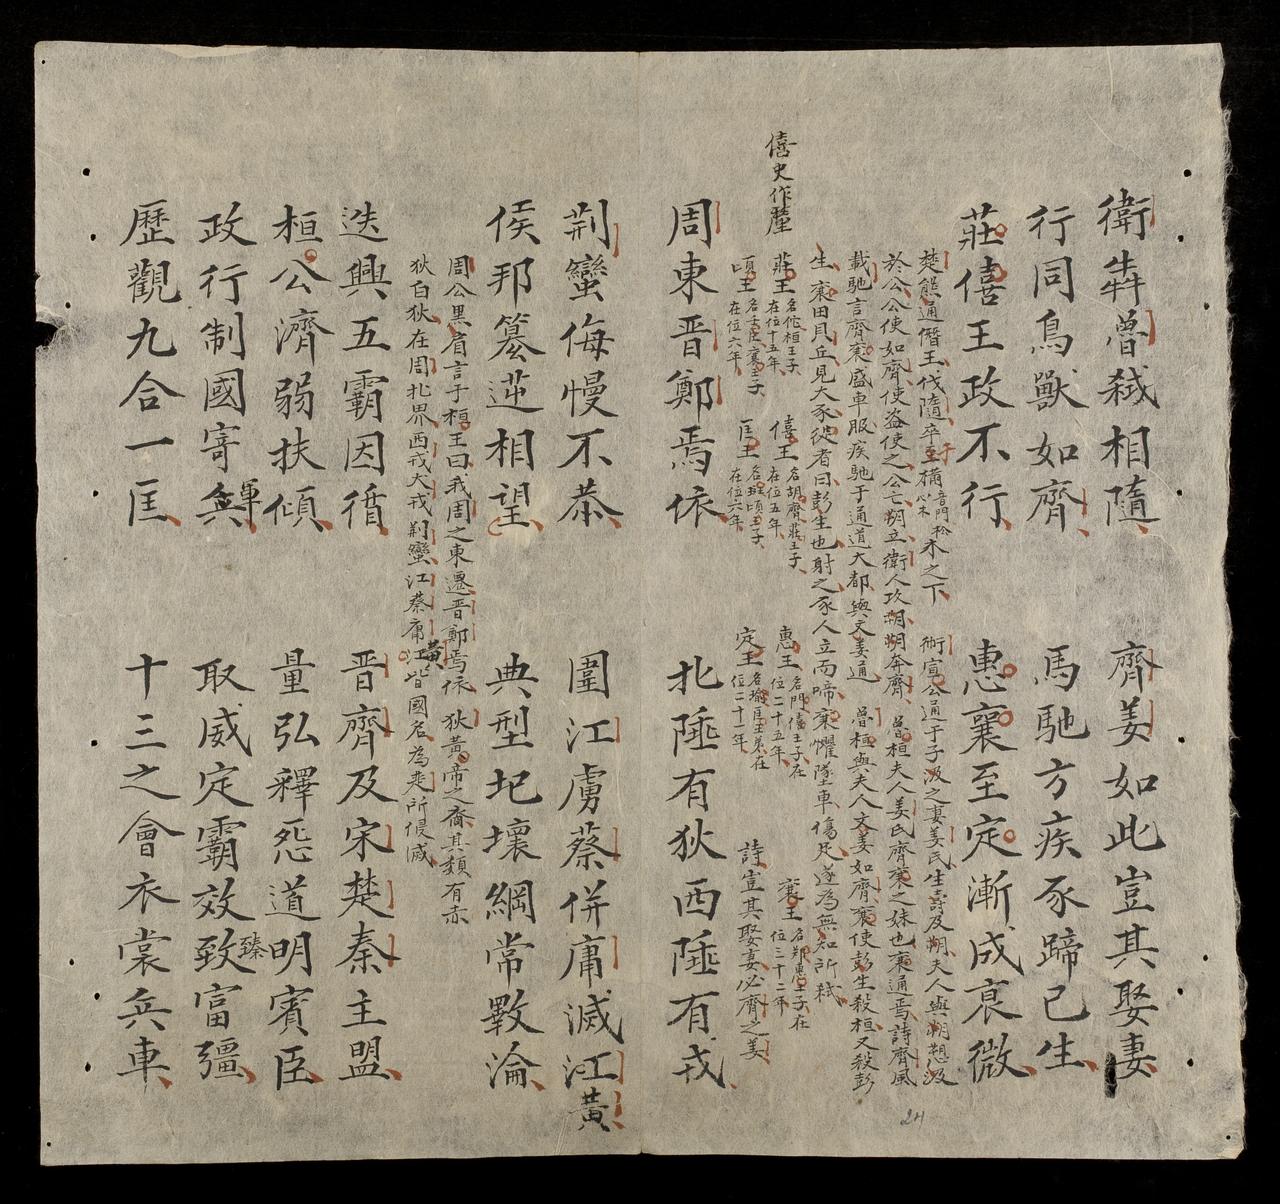 衛犇魯弒相隨 齊姜如此豈其娶妻
行同鳥獸如齊 馬馳方疾豕蹄已生
莊僖王政不行 惠襄至定漸成衰微
楚熊通僭王伐隨卒于樠音門松心木木之下 衛宣公通于子汲之妻姜氏生壽及朔夫人與朔愬汲
於公公使如齊使盜使之公亡朔立衛人攻朔朔奔齊 魯桓夫人姜氏齊襄之妹也襄通焉詩齊風
載馳言齊襄盛車服疾馳于通道大都與文姜通 魯桓與夫人文姜如齊襄使彭生殺桓又殺彭
生襄田貝丘見大豕從者曰彭生也射之豕人立而啼襄懼墜車傷足遂為無知所弒
僖史作釐
莊王名佗桓王子在位十五年 僖王名胡齊莊王子在位五年 惠王名閬僖王子在位二十五年 襄王名鄭惠王子在位三十二年
頃王名壬臣襄王子在位六年 匡王名班頃王子在位六年 定王名瑜匡王弟在位二十一年 詩豈其娶妻必齊之姜
周東晋鄭焉依 北陲有狄西陲有戎
荆蠻侮慢不恭 圍江虜蔡併庸滅江黃
侯邦篡逆相望 典型圮壞綱常斁淪
周公黑肩言于桓王曰我周之東遷晋鄭焉依 狄黃帝之裔其類有赤
狄白狄在周北界西戎犬戎荆蠻江蔡庸江黃皆國名為楚所侵滅
迭興五霸因循 晋齊及宋楚秦主盟
桓公濟弱扶傾 量弘釋怨道明賓臣
政行制國寄兵軍 取威定霸效致臻富彊
歷觀九合一匡 十三之會衣裳兵車
24